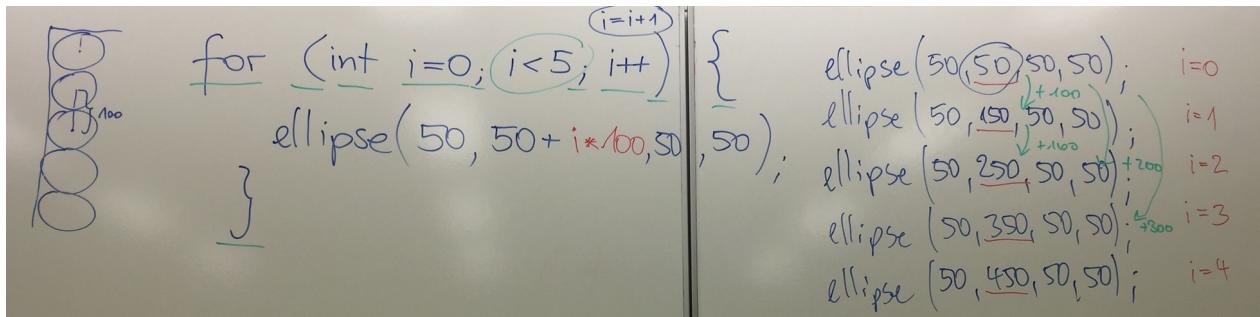 i=i+1
for (int i=0; i<5; i++) {
ellipse(50, 50+i*100,50,50);
}
100
ellipse(50,50,50,50); i=0
+100
ellipse(50,150,50,50); i=1
+100
ellipse(50,250,50,50); +200 i=2
ellipse(50,350,50,50); +300 i=3
ellipse(50,450,50,50); i=4